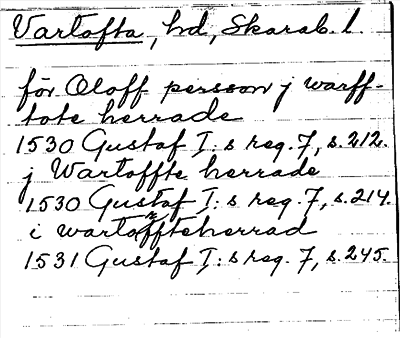 Vartofta, hd, Skarab. l.
för Oloff persson j warff-
tote herrade
1530 Gustaf I: s reg. 7, s. 212.
j Wartoffte herrade
1530 Gustaf I: s reg. 7, s. 214.
i wartoffteherrad
1531 Gustaf I: s reg. 7, s. 245.